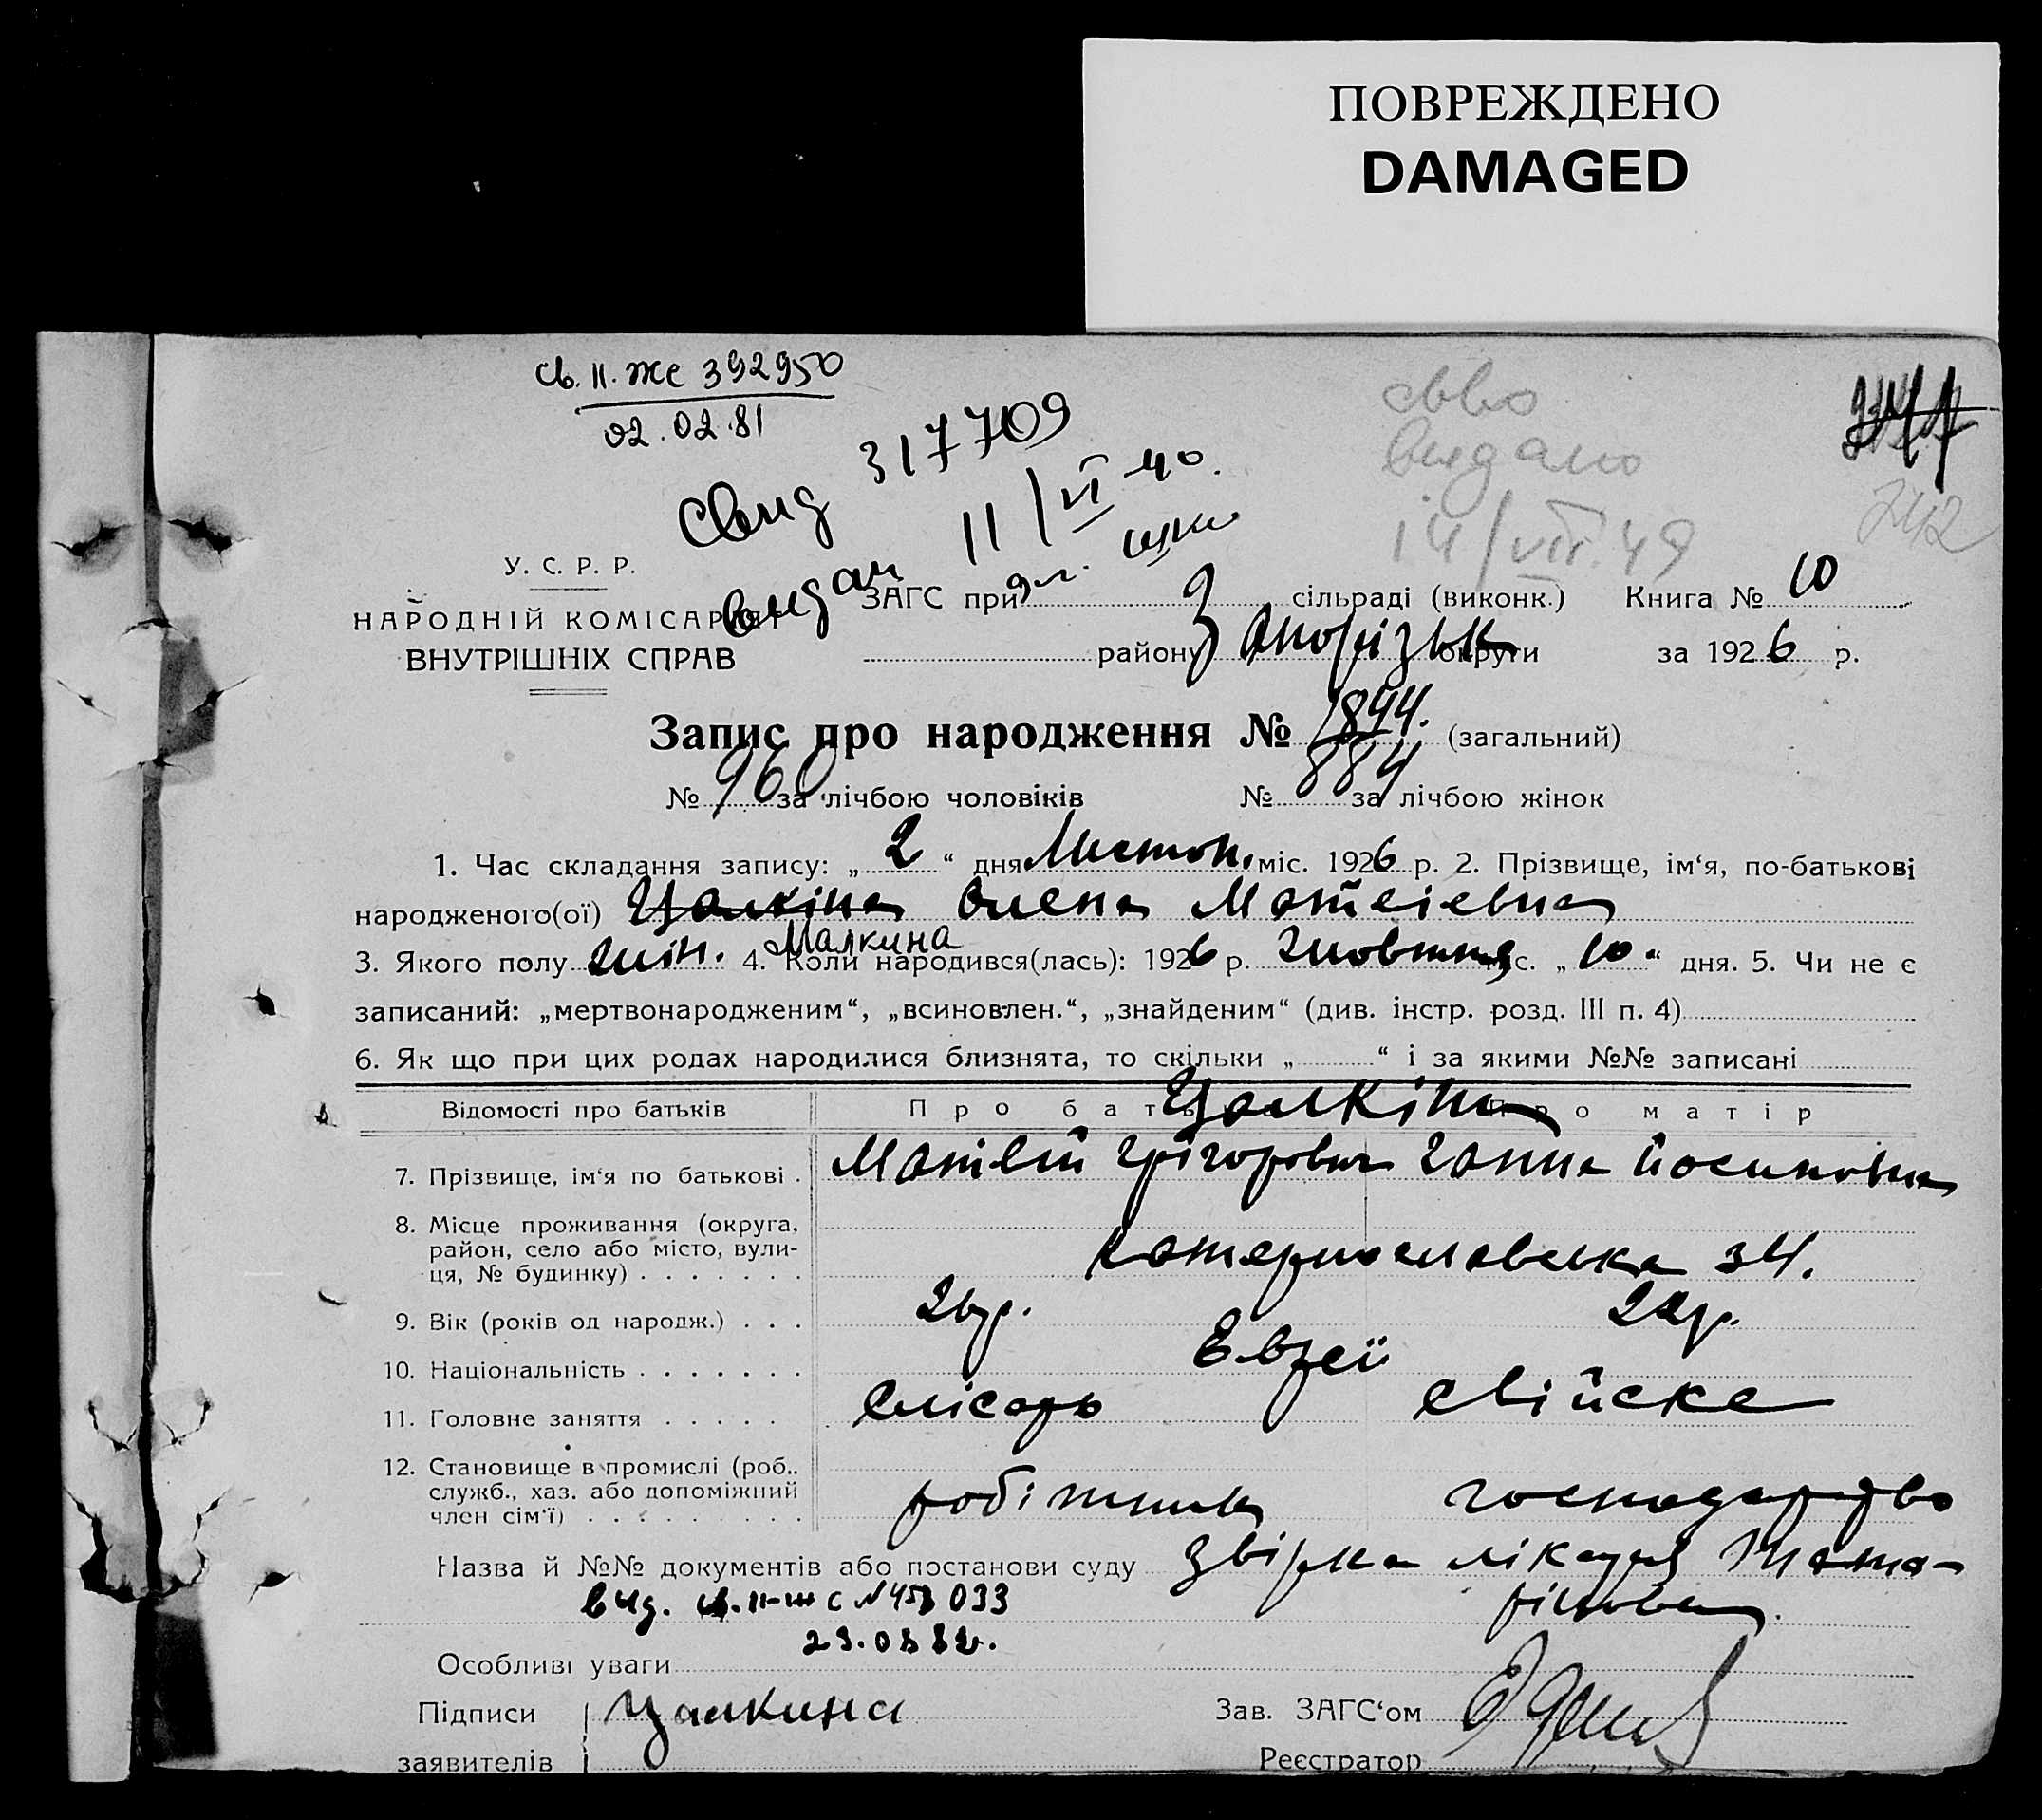 ПОВРЕЖДЕНО
DAMAGED
св. II. же 392950
02.02.81
Свид 317709
видан 11/VI 40.
св-во
видано
14/VII.49
242
У. С. Р. Р.
НАРОДНІЙ КОМІСАРІЯТ
ВНУТРІШНІХ СПРАВ
ЗАГС при сільраді (виконк.) Книга № 10
району Запорізьк округи за 1926 р.
Запис про народження № 1844. (загальний)
№ 960 за лічбою чоловіків № 884 за лічбою жінок
1. Час складання запису: „ 2 “ дня Листоп. міс. 1926 р. 2. Прізвище, ім‘я, по-батькові
народженого(ої) Цалкіна Олена Матвієвна
Малкина
3. Якого полу жін. 4. Коли народився(лась): 1926 р. Жовтня міс. „ 10 “ дня. 5. Чи не є
записаний: „мертвонародженим“, „всиновлен.“, „знайденим“ (див. інстр. розд. III п. 4)
6. Як що при цих родах народилися близнята, то скільки „ “ і за якими №№ записані
Відомості про батьків Про батька Про матір
Цалкіни
7. Прізвище, ім‘я по батькові . Матвій Грігорович Ганна Йосиповна
8. Місце проживання (округа,
район, село або місто, вули-
ця, № будинку) . . . . . . . Катеринославська 34.
9. Вік (років од народж.) . . . 26 р. 22 р.
10. Національність . . . . . . . Евреї
11. Головне заняття . . . . . Слісарь свійске
12. Становище в промислі (роб.,
служб., хаз. або допоміжний
член сім‘ї) . . . . . . . . . робітник господарство
Назва й №№ документів або постанови суду Звірка лікаря
вид. св. II-ЖС № 033
Особливі уваги
Підписи Цалкина Зав. ЗАГС‘ом
заявителів Реєстратор